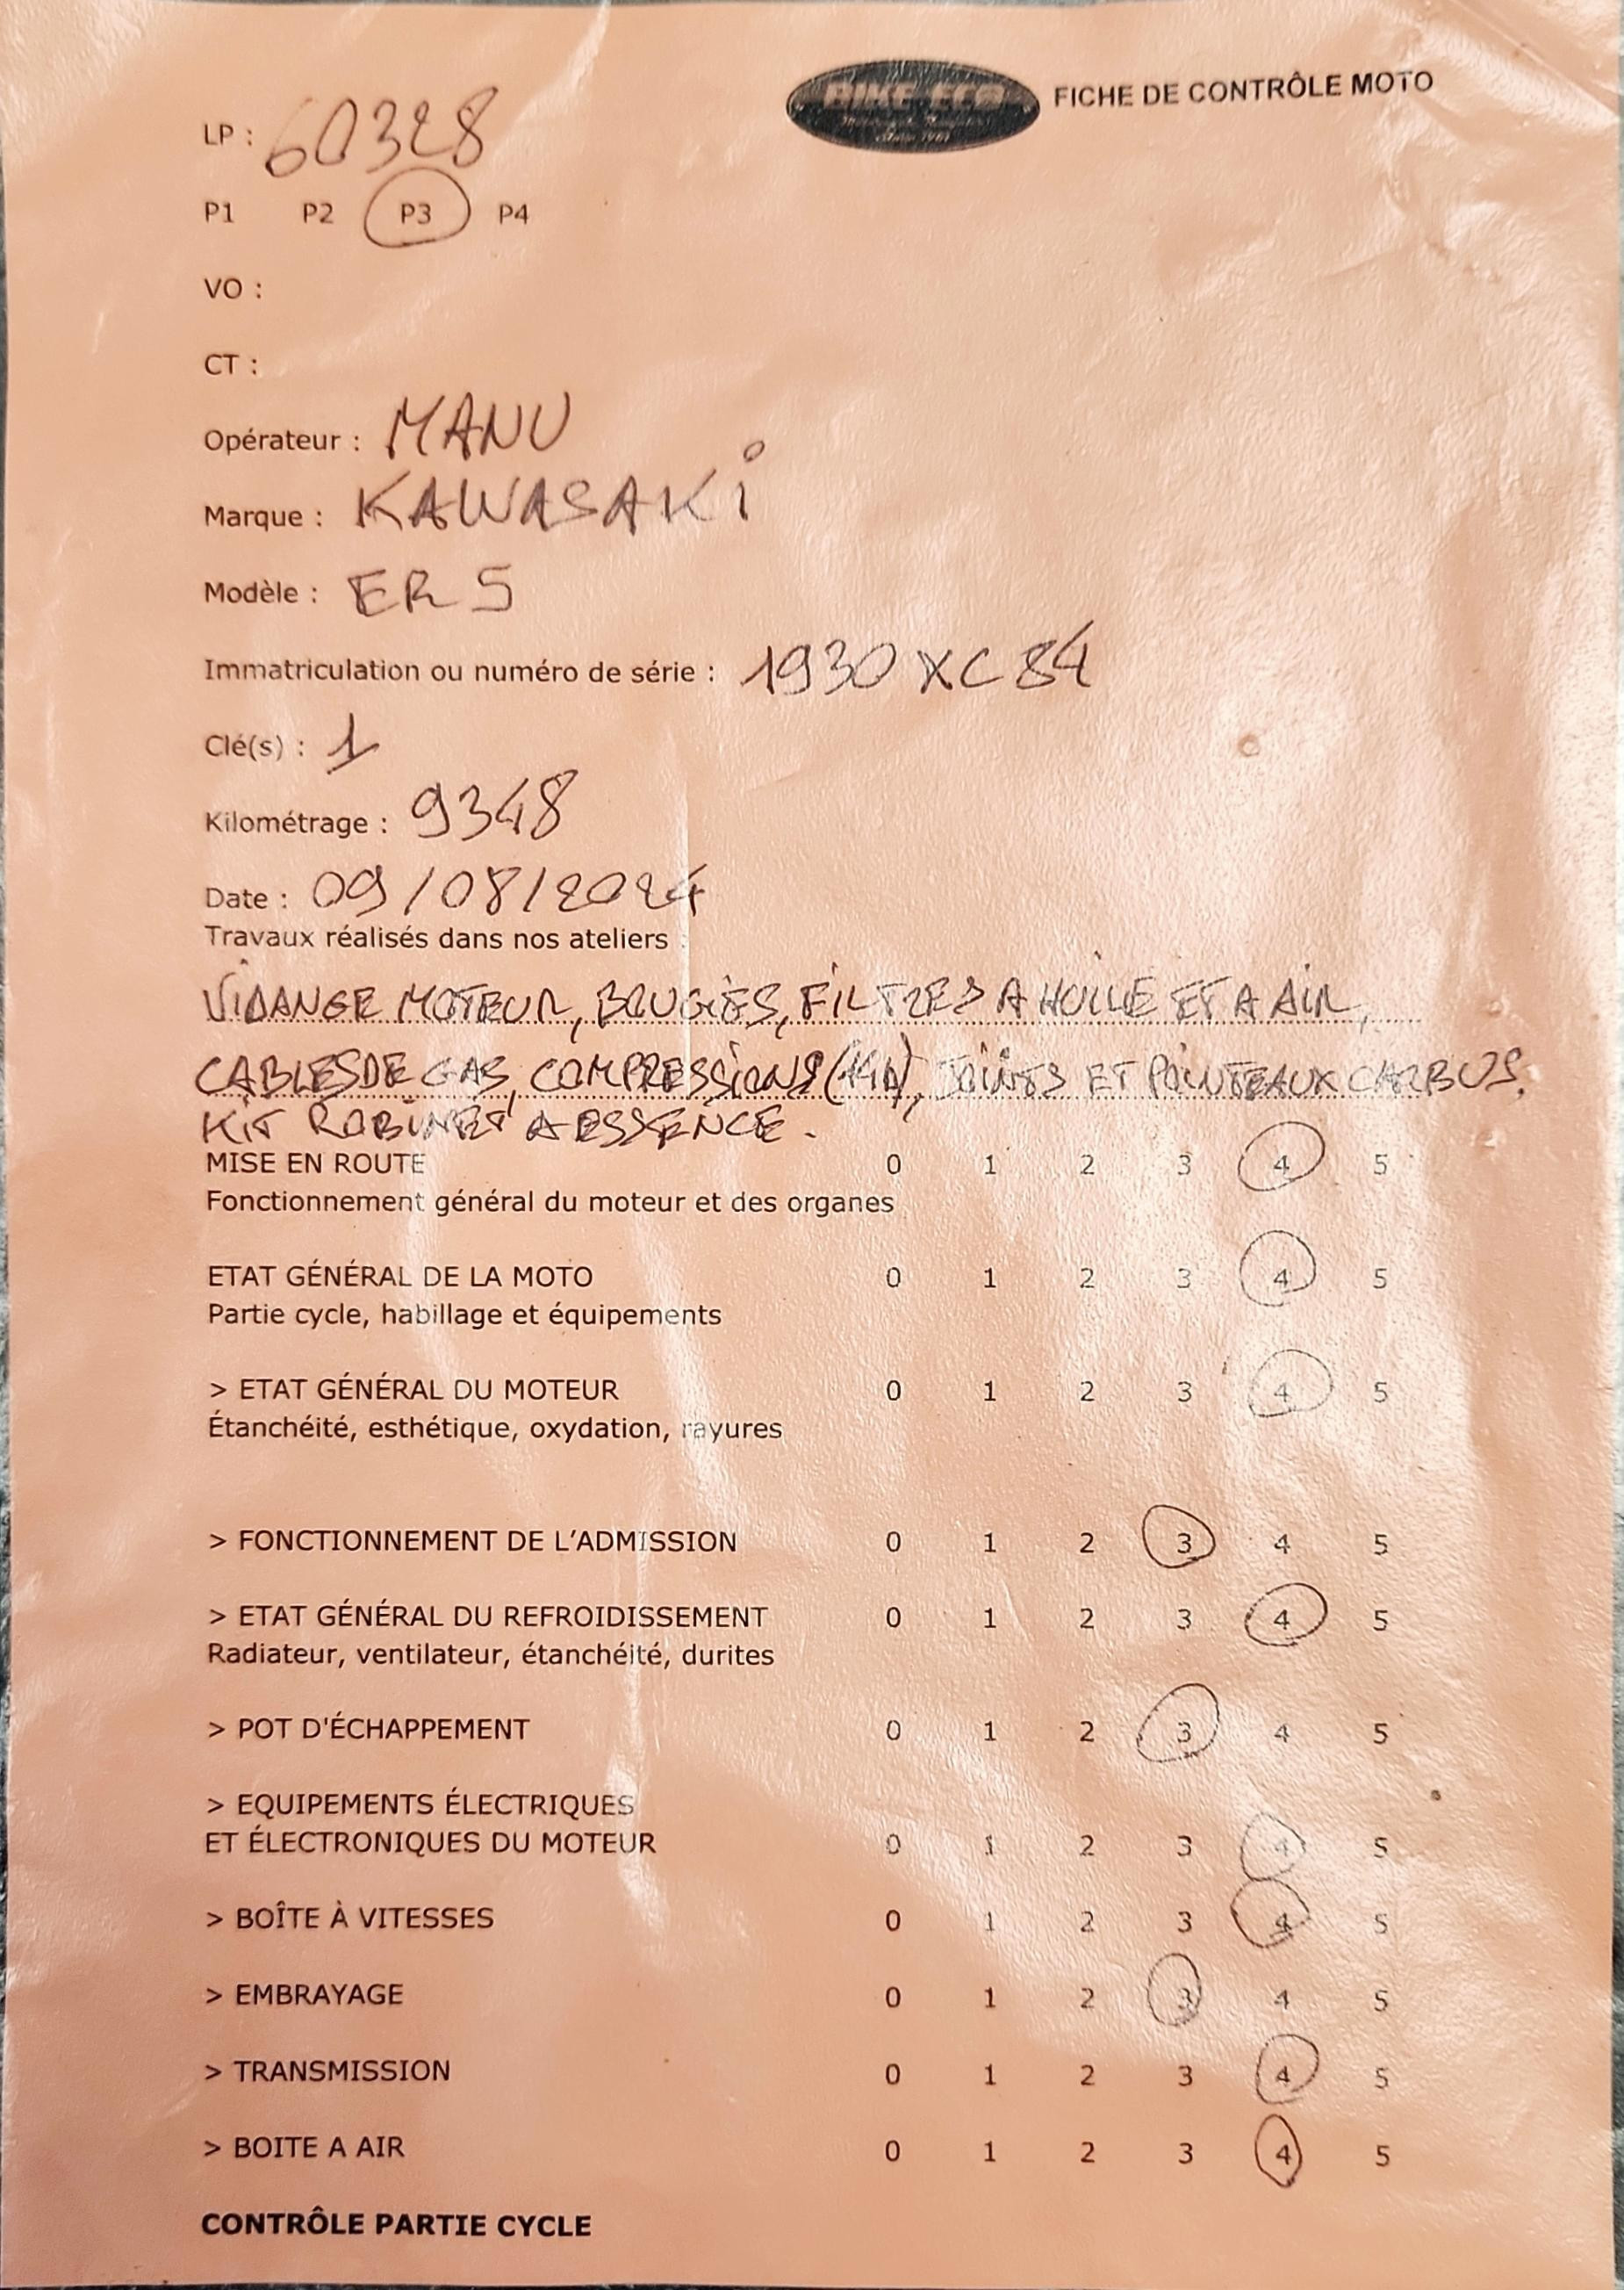 BIKE-ECO
FICHE DE CONTRÔLE MOTO
LP : 60328
P1 P2 P3 P4
VO :
CT :
Opérateur : MANU
Marque : KAWASAKi
Modèle : ER 5
Immatriculation ou numéro de série : 1930 XC 84
Clé(s) : 1
Kilométrage : 9348
Date : 09/08/2024
Travaux réalisés dans nos ateliers :
ViDANGE MOTEUR, BOUGiES, FiLTRES A HUiLE ET A AiR,
CABLES DE GAS, COMPRESSiONS, JOiNTS ET POiNTEAUX CARBUS,
KiT ROBiNET A ESSENCE.
MISE EN ROUTE 0 1 2 3 4 5
Fonctionnement général du moteur et des organes
ETAT GÉNÉRAL DE LA MOTO 0 1 2 3 4 5
Partie cycle, habillage et équipements
> ETAT GÉNÉRAL DU MOTEUR 0 1 2 3 4 5
Étanchéité, esthétique, oxydation, rayures
> FONCTIONNEMENT DE L'ADMISSION 0 1 2 3 4 5
> ETAT GÉNÉRAL DU REFROIDISSEMENT 0 1 2 3 4 5
Radiateur, ventilateur, étanchéité, durites
> POT D'ÉCHAPPEMENT 0 1 2 3 4 5
> EQUIPEMENTS ÉLECTRIQUES
ET ÉLECTRONIQUES DU MOTEUR 0 1 2 3 4 5
> BOÎTE À VITESSES 0 1 2 3 4 5
> EMBRAYAGE 0 1 2 3 4 5
> TRANSMISSION 0 1 2 3 4 5
> BOITE A AIR 0 1 2 3 4 5
CONTRÔLE PARTIE CYCLE